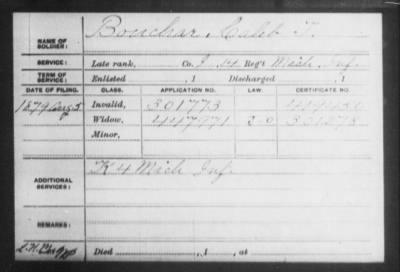 NAME OF SOLDIER: Bouchar, Caleb T.
SERVICE: Late rank, Co. I 14 Reg't Mich Inf.
TERM OF SERVICE: Enlisted , 1 Discharged , 1
DATE OF FILING. CLASS. APPLICATION NO. LAW. CERTIFICATE NO.
1879 Aug 5 Invalid, 301773
Widow, 447971
Minor,
ADDITIONAL SERVICES: K 4 Mich Inf.
REMARKS:
Died , 1 , at